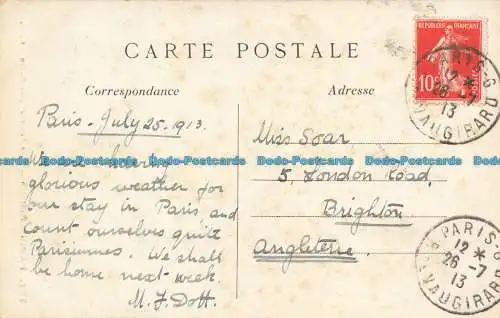 CARTE POSTALE
Correspondance
Adresse
REPUBLIQUE FRANÇAISE
10c
POSTES
PARIS-6
12 *
26 -7
13
VAUGIRARD
Paris - July 25. 1913.
We are having
glorious weather for
our stay in Paris and
count ourselves quite
Parisiennes. We shall
be home next week.
M. J. Dott.
Miss Soar
5, London Road,
Brighton
Angleterre
PARIS-6
12 *
26 -7
13
VAUGIRARD
Dodo-Postcards Dodo-Postcards Dodo-Postcards Dodo-Postcards Dodo-Postcards